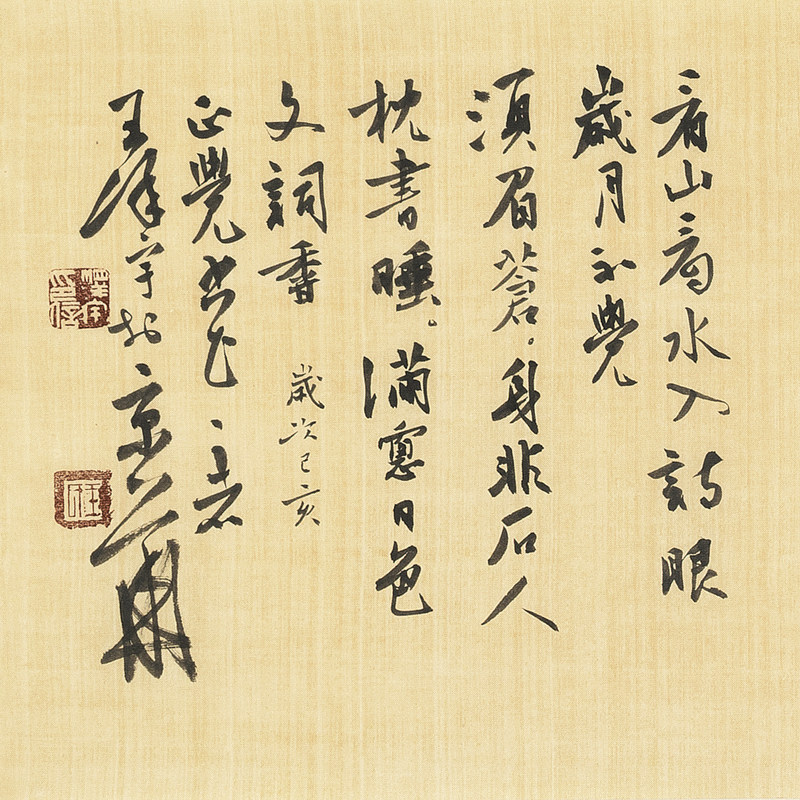 看山看水入詩眼
歲月不覺
須眉蒼身非石人
枕書睡滿窗日色
文詞香 歲次己亥
正覺
王澤宇於京
澤宇印信